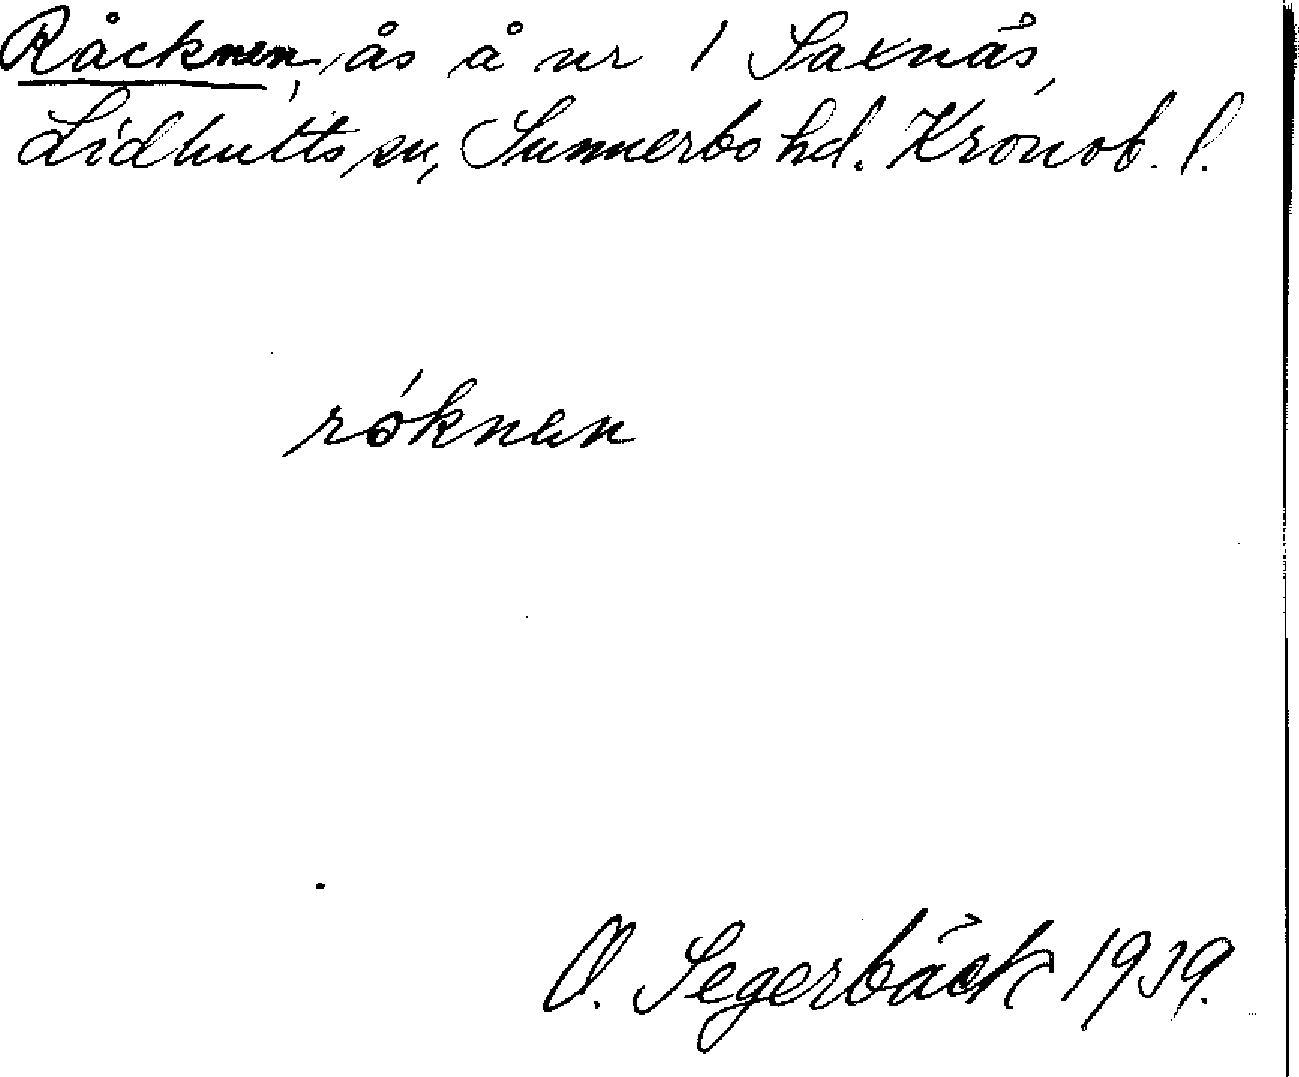 Råcknen, ås å nr 1 Saxnäs,
Lidhults sn, Sunnerbo hd. Kronob. l.
róknan
O. Segerbäck 1939.